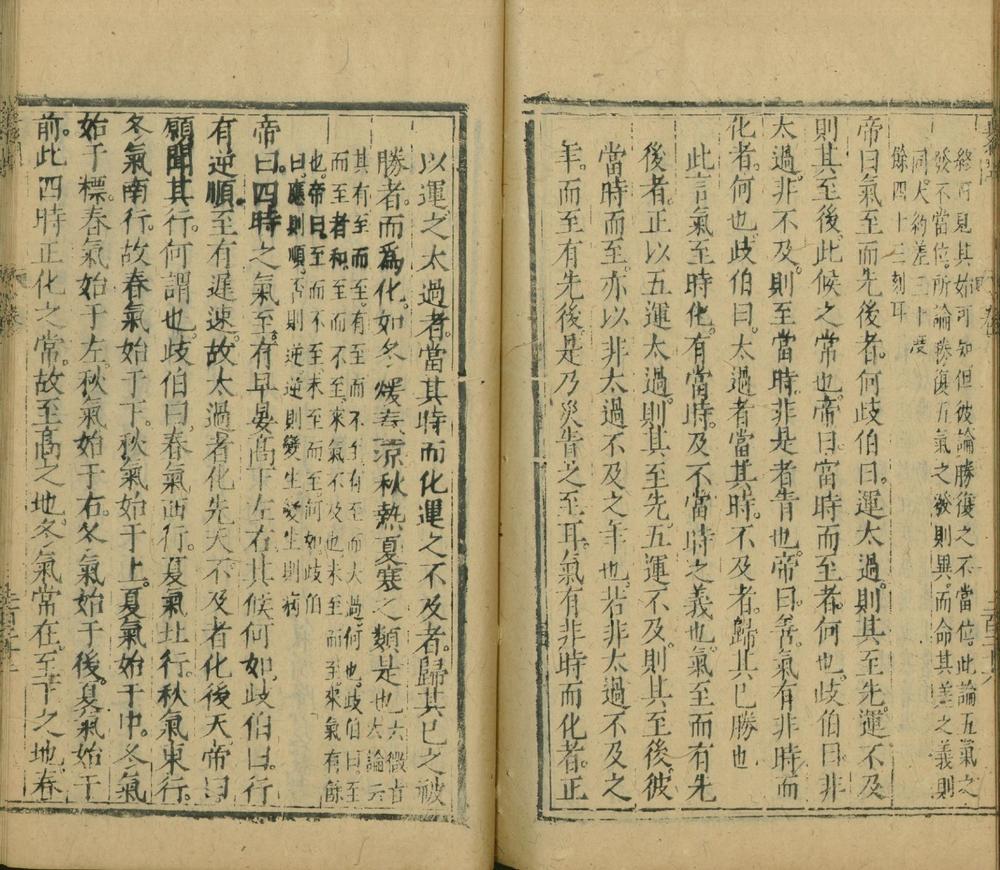 終可見其始可知但彼論勝復之不當位此論五氣之
發不當位所論勝復五氣之發則異而命其差之義則
同大約差三十度
餘四十三刻耳
帝曰氣至而先後者何歧伯曰運太過則其至先運不及
則其至後此候之常也帝曰當時而至者何也歧伯曰非
太過非不及則至當時非是者眚也帝曰善氣有非時而
化者何也歧伯曰太過者當其時不及者歸其已勝也
此言氣至時化有當時及不當時之義也氣至而有先
後者正以五運太過則其至先五運不及則其至後彼
當時而至亦以非太過不及之年也若非太過不及之
年而至有先後是乃災眚之至耳氣有非時而化者正
以運之太過者當其時而化運之不及者歸其已之被
勝者而爲化如冬煖春涼秋熱夏寒之類是也六微旨
大論云
其有至而至有至而不至有至而太過何也歧伯曰至
而至者和至而不至來氣不及也未至而至來氣有餘
也帝曰至而不至未至而至何如歧伯
曰應則順否則逆逆則變生變生則病
帝曰四時之氣至有早晏高下左右其候何如歧伯曰行
有逆順至有遲速故太過者化先天不及者化後天帝曰
願聞其行何謂也歧伯曰春氣西行夏氣北行秋氣東行
冬氣南行故春氣始于下秋氣始于上夏氣始于中冬氣
始于標春氣始于左秋氣始于右冬氣始于後夏氣始于
前此四時正化之常故至高之地冬氣常在至下之地春